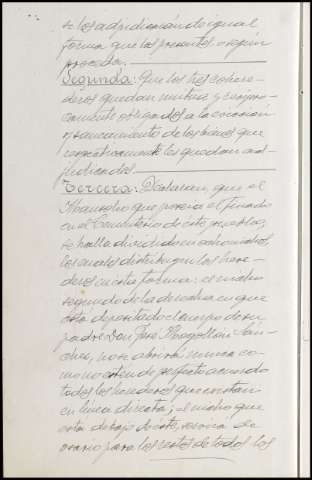 se los adjudicarán de igual
forma que los presentes o según
proceda.
Segunda: Que los tres cohere-
deros quedan mutua y
mente obligados a la evicción
y saneamiento de los bienes que
respectivamente les quedan ad-
judicados
Tercera: Declaran, que el
Mausoleo que poseía el finado
en el Cementerio de este pueblo,
se halla dividido en ocho nichos,
los cuales distribuyen los here-
deros en esta forma: el nicho
segundo de la derecha en que
está depositado el cuerpo de su
padre Don José Mogollón Sán-
chez, no se abrirá nunca co-
mo no esten de perfecto acuerdo
todos los herederos que constan
en línea directa; el nicho que
está debajo de éste, servirá de
osario para los restos de todos los